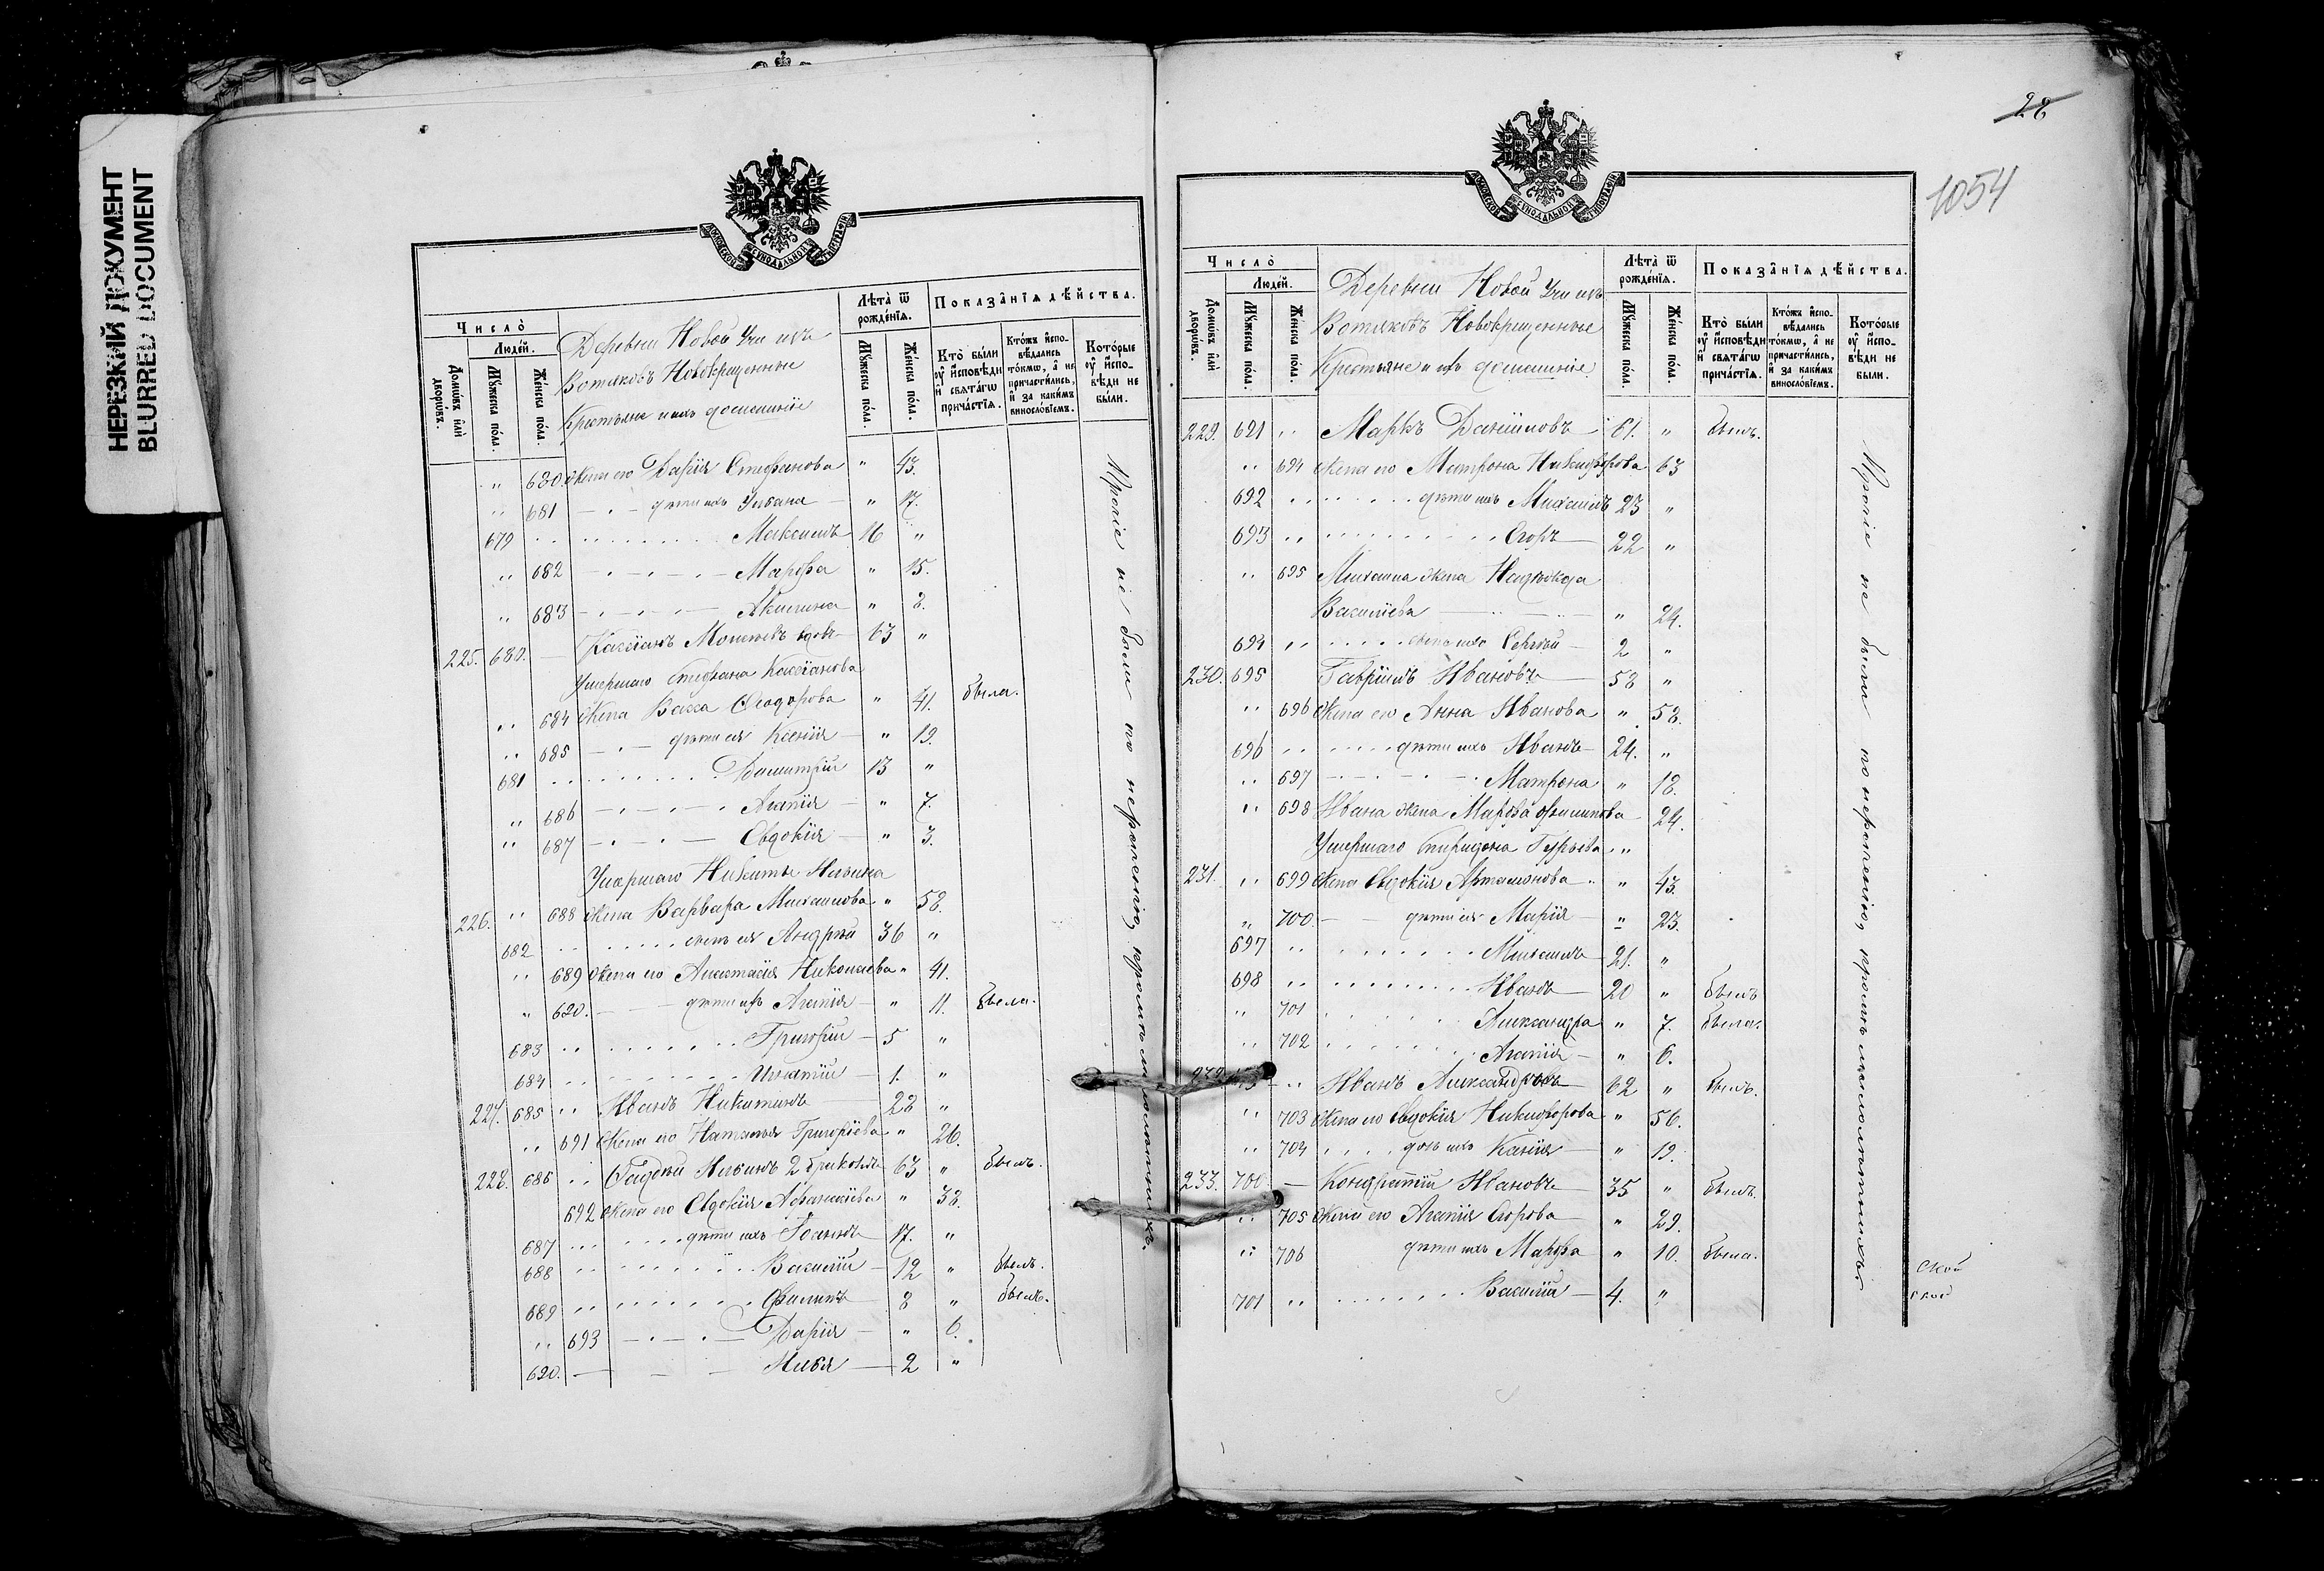 НЕРЕЗКИЙ ДОКУМЕНТ
BLURRED DOCUMENT
МОСКОВСКОЙ СУНОДАЛЬНОЙ ТИПОГРАФІИ
Число̀
Людей.
Домѡвъ и҆лѝ дворѡвъ.
Мꙋжеска пола.
Женска пола.
Деревни Новой Учи изъ
Вотяковъ Новокрещенные
Крестьяне и ихъ домашніе
Лѣта̀ ѿ рожденїѧ.
Мꙋжеска пола.
Женска пола.
Показанїѧ дѣйства.
Кто̀ были ᲂу҆ и҆сповѣди и҆ свѧтагѡ причастїѧ.
Ктожъ и҆сповѣдались токмѡ, а҆ не причастились, и҆ за какимъ винословїемъ.
Которые ᲂу҆ и҆сповѣди не были.
" 680. Жена его Дарія Стефанова " 43.
" 681 дѣти ихъ Ульяна " 17.
679 Максимъ 16 "
" 682 Марѳа " 15.
" 683 Акилина " 8.
225. 680. Кассіанъ Моисеевъ вдовъ 63 "
Умершаго Стефана Кассіанова
" 684 Жена Васса Ѳеодорова " 41. была.
" 685 дѣти ея Ксенія " 19.
681 Димитрій 13 "
" 686 Агапія " 7.
" 687 Евдокія " 3.
Умершаго Никиты Ильина
226. " 688 Жена Варвара Михаилова " 58.
682 сынъ ея Андрей 36 "
" 689 Жена его Анастасія Николаева " 41.
" 690. дѣти ихъ Агапія " 11. была.
683 Григорій 5 "
684 Игнатій 1. "
227. 685 Иванъ Никитинъ 28 "
" 691 Жена его Наталья Григоріева " 26.
228. 686 Фадѣй Ильинъ 2 бракомъ 63 " былъ.
692 Жена его Евдокія Афанасіева " 38.
687 дѣти ихъ Іоаннъ 17. "
688 Василій 12 " былъ.
689 Филиппъ 8 " былъ.
" 693 Дарія " 6.
690. Илья 2 "
Прочіе не были по нераченію, кромѣ малолѣтнихъ.
28
1054
МОСКОВСКОЙ СУНОДАЛЬНОЙ ТИПОГРАФІИ
Число̀
Людей.
Домѡвъ и҆лѝ дворѡвъ.
Мꙋжеска пола.
Женска пола.
Деревни Новой Учи изъ
Вотяковъ Новокрещенные
Крестьяне и ихъ домашніе.
Лѣта̀ ѿ рожденїѧ.
Мꙋжеска пола.
Женска пола.
Показанїѧ дѣйства.
Кто̀ были ᲂу҆ и҆сповѣди и҆ свѧтагѡ причастїѧ.
Ктожъ и҆сповѣдались токмѡ, а҆ не причастились, и҆ за какимъ винословїемъ.
Которые ᲂу҆ и҆сповѣди не были.
229. 691 Маркъ Даніиловъ 61. " былъ.
" 694 Жена его Матрона Никифорова 63
692 дѣти ихъ Михаилъ 25 "
693 Егоръ 22 "
" 695 Михаила жена Надежда
Василіева " 24.
694 сынъ ихъ Сергѣй 2 "
230. 695 Гавріилъ Ивановъ 58 "
" 696 Жена его Анна Иванова " 58.
696 дѣти ихъ Иванъ 24. "
" 697 Матрона " 18.
" 698 Ивана жена Марѳа Филиппова 24.
Умершаго Спиридона Гурьева "
231. " 699 Жена Евдокія Артамонова " 43.
" 700. дѣти ея Марія " 23.
697 Михаилъ 21. "
698 Иванъ 20 " былъ
" 701 Александра " 7. была.
" 702 Агапія " 6.
Иванъ Александровъ 62 " былъ.
" 703 Жена его Евдокія Никифорова " 56.
" 704 дочь ихъ Ксенія " 19.
233. 700 Кондратій Ивановъ 35 " былъ.
" 705 Жена его Агапія Егорова " 29.
" 706 дѣти ихъ Марѳа " 10. была.
701 Василій 4. "
Прочіе не были по нераченію, кромѣ малолѣтнихъ
ской